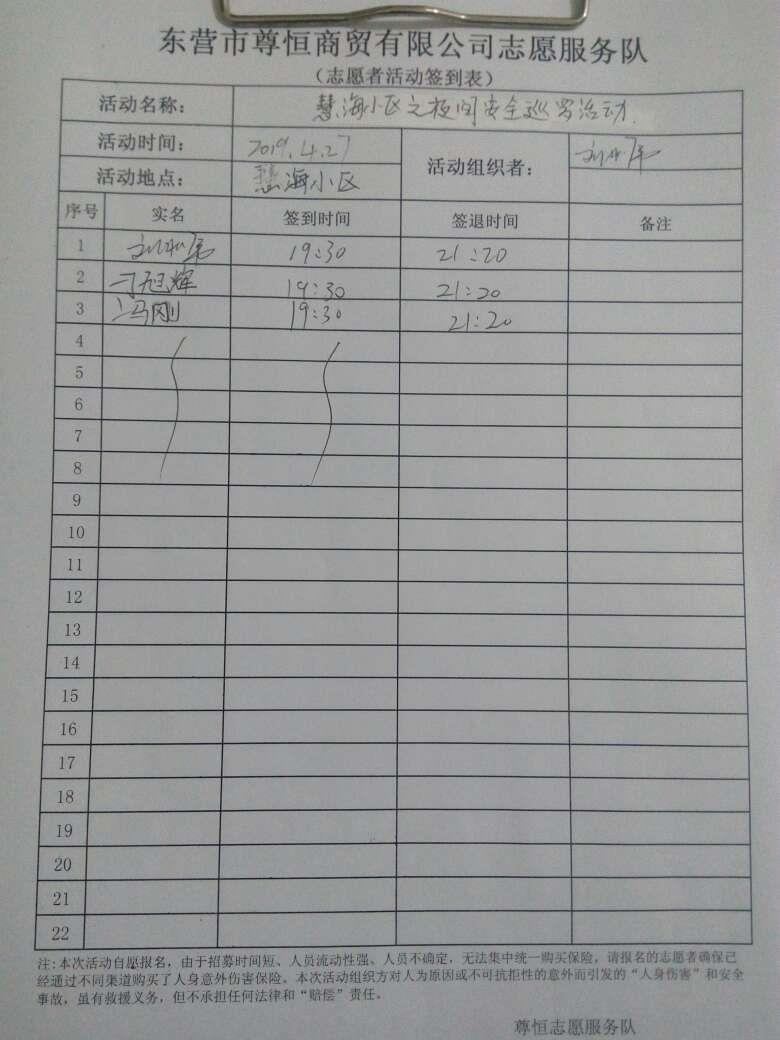 东营市尊恒商贸有限公司志愿服务队
（志愿者活动签到表）
活动名称： 慧海小区之夜间安全巡逻活动.
活动时间： 2019.4.27 活动组织者：
活动地点： 慧海小区
序号 实名 签到时间 签退时间 备注
1 19:30 21:20
2 刁旭辉 19:30 21:20
3 冯刚 19:30 21:20
4
5
6
7
8
9
10
11
12
13
14
15
16
17
18
19
20
21
22
注：本次活动自愿报名，由于招募时间短、人员流动性强、人员不确定，无法集中统一购买保险，请报名的志愿者确保已
经通过不同渠道购买了人身意外伤害保险。本次活动组织方对人为原因或不可抗拒性的意外而引发的“人身伤害”和安全
事故，虽有救援义务，但不承担任何法律和“赔偿”责任。
尊恒志愿服务队